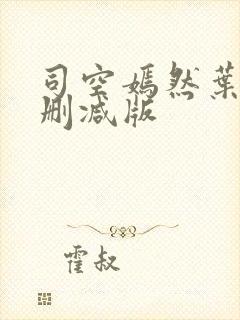 司空嫣然葉
删减版
霍叔